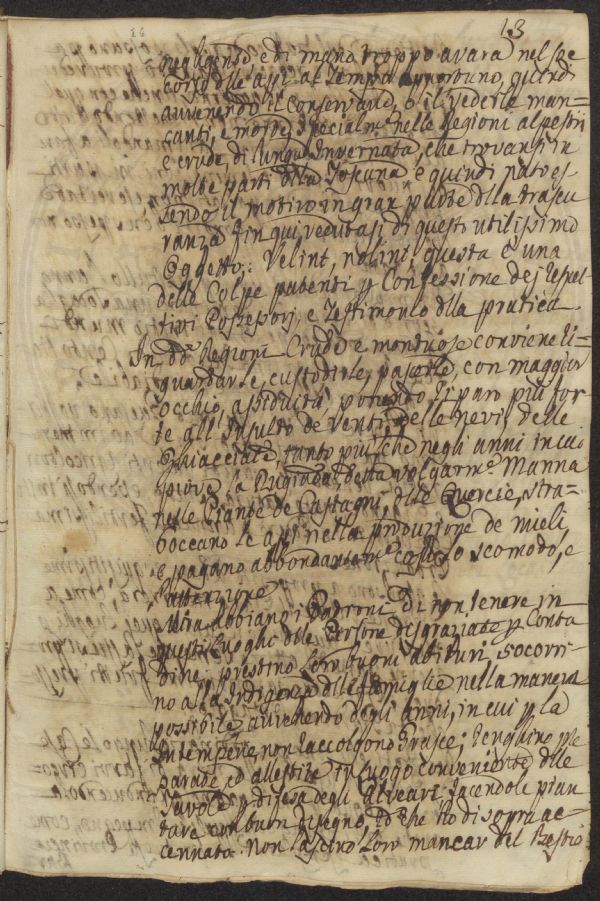 13
negligenso e di mano troppo avara nel soc
corso delle api al tempo opportuno, quindi
avvenendo il conservand, o il vederle man=
canti, e morte, specialm.e nelle Regioni alpestri
e crude, di lunga Invernata, che trovansi in
molte parti della Toscana è quindi nato es
sendo il motivo in gran parte della trascu
ranza fin qui vedutasi di questi utilissimo
Oggetto: Velint, nolint, questa è una
delle Colpe patenti p Confessione dej respet
tivi Possessorj, e Testimonio dlla pratica
In dde Regioni Crude e montuose conviene ri=
guardarle, custodirle, pascerle, con maggior
occhio, assiduità, ponendo riparo più for
te all'Insulto de Venti, delle nevi, delle
Ghiacciate, tanto più che negli anni in cui
piove la Rugiada detta volgarm.e Manna
nelle Piante de Castagni, delle Quercie, stra=
boccano le api nella produzione de mieli,
e pagano abbondantem.e costo, o scomodo, e
l'attenzione
Mira abbiano i Padroni di non tenere in
questi Luoghi delle Persone disgraziate p Conta
dine, prestino loro buoni abituri, socorri=
no alla Indigenza delle famiglie nella maniera
possibile avvenendo degli anni, in cui p la
Intemperie non raccolgono Grasce; Tenghino pre
parate ed allestite in luogo conveniente delle
Tavole p difesa degli Alveari facendole pian
tare con buon disegno, dde che Ho di sopra ac=
cennato. Non lascino loro mancar del Bestio